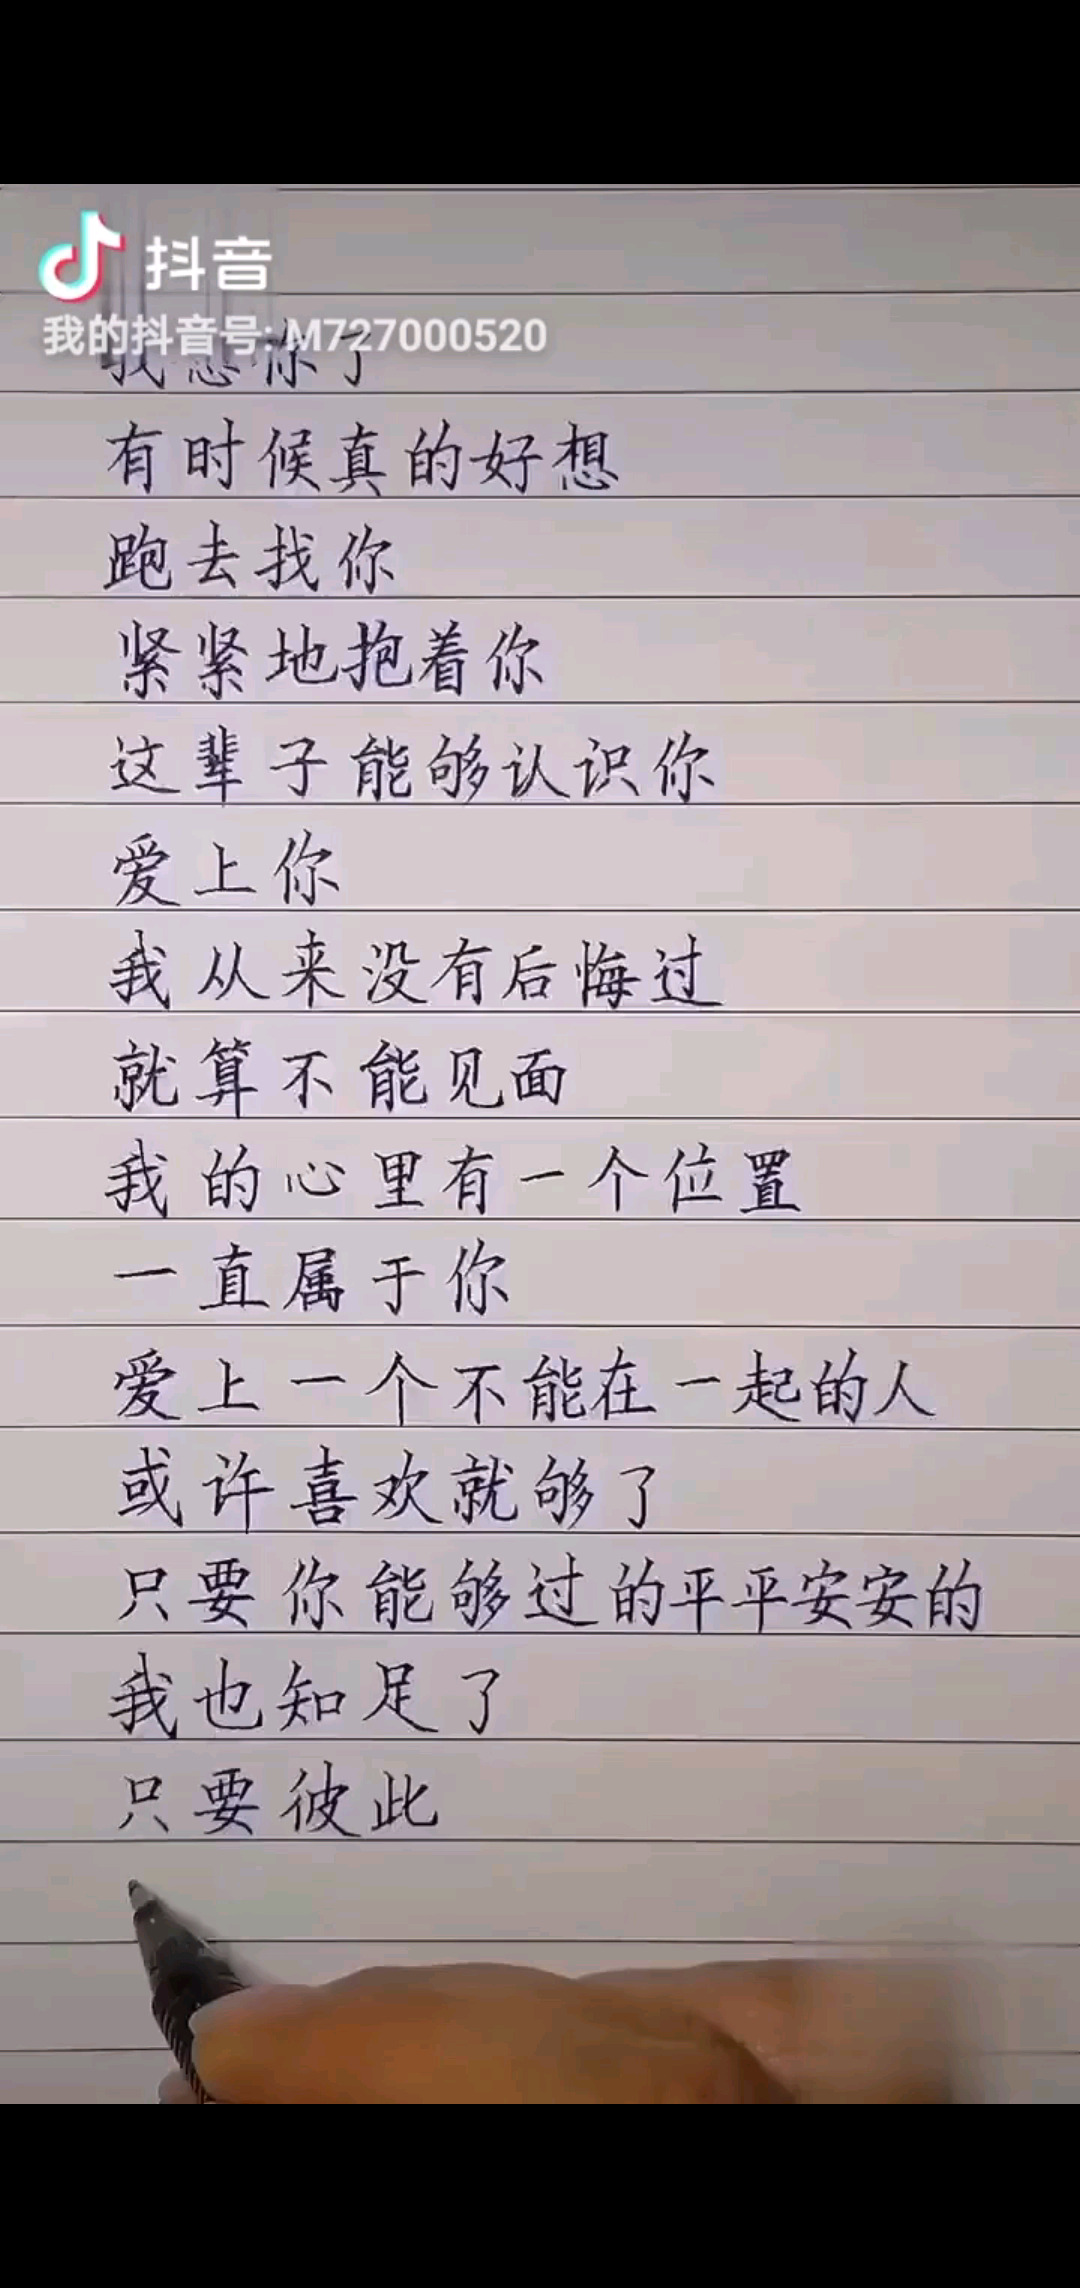 抖音
我的抖音号: M727000520
我想你了
有时候真的好想
跑去找你
紧紧地抱着你
这辈子能够认识你
爱上你
我从来没有后悔过
就算不能见面
我的心里有一个位置
一直属于你
爱上一个不能在一起的人
或许喜欢就够了
只要你能够过的平平安安的
我也知足了
只要彼此